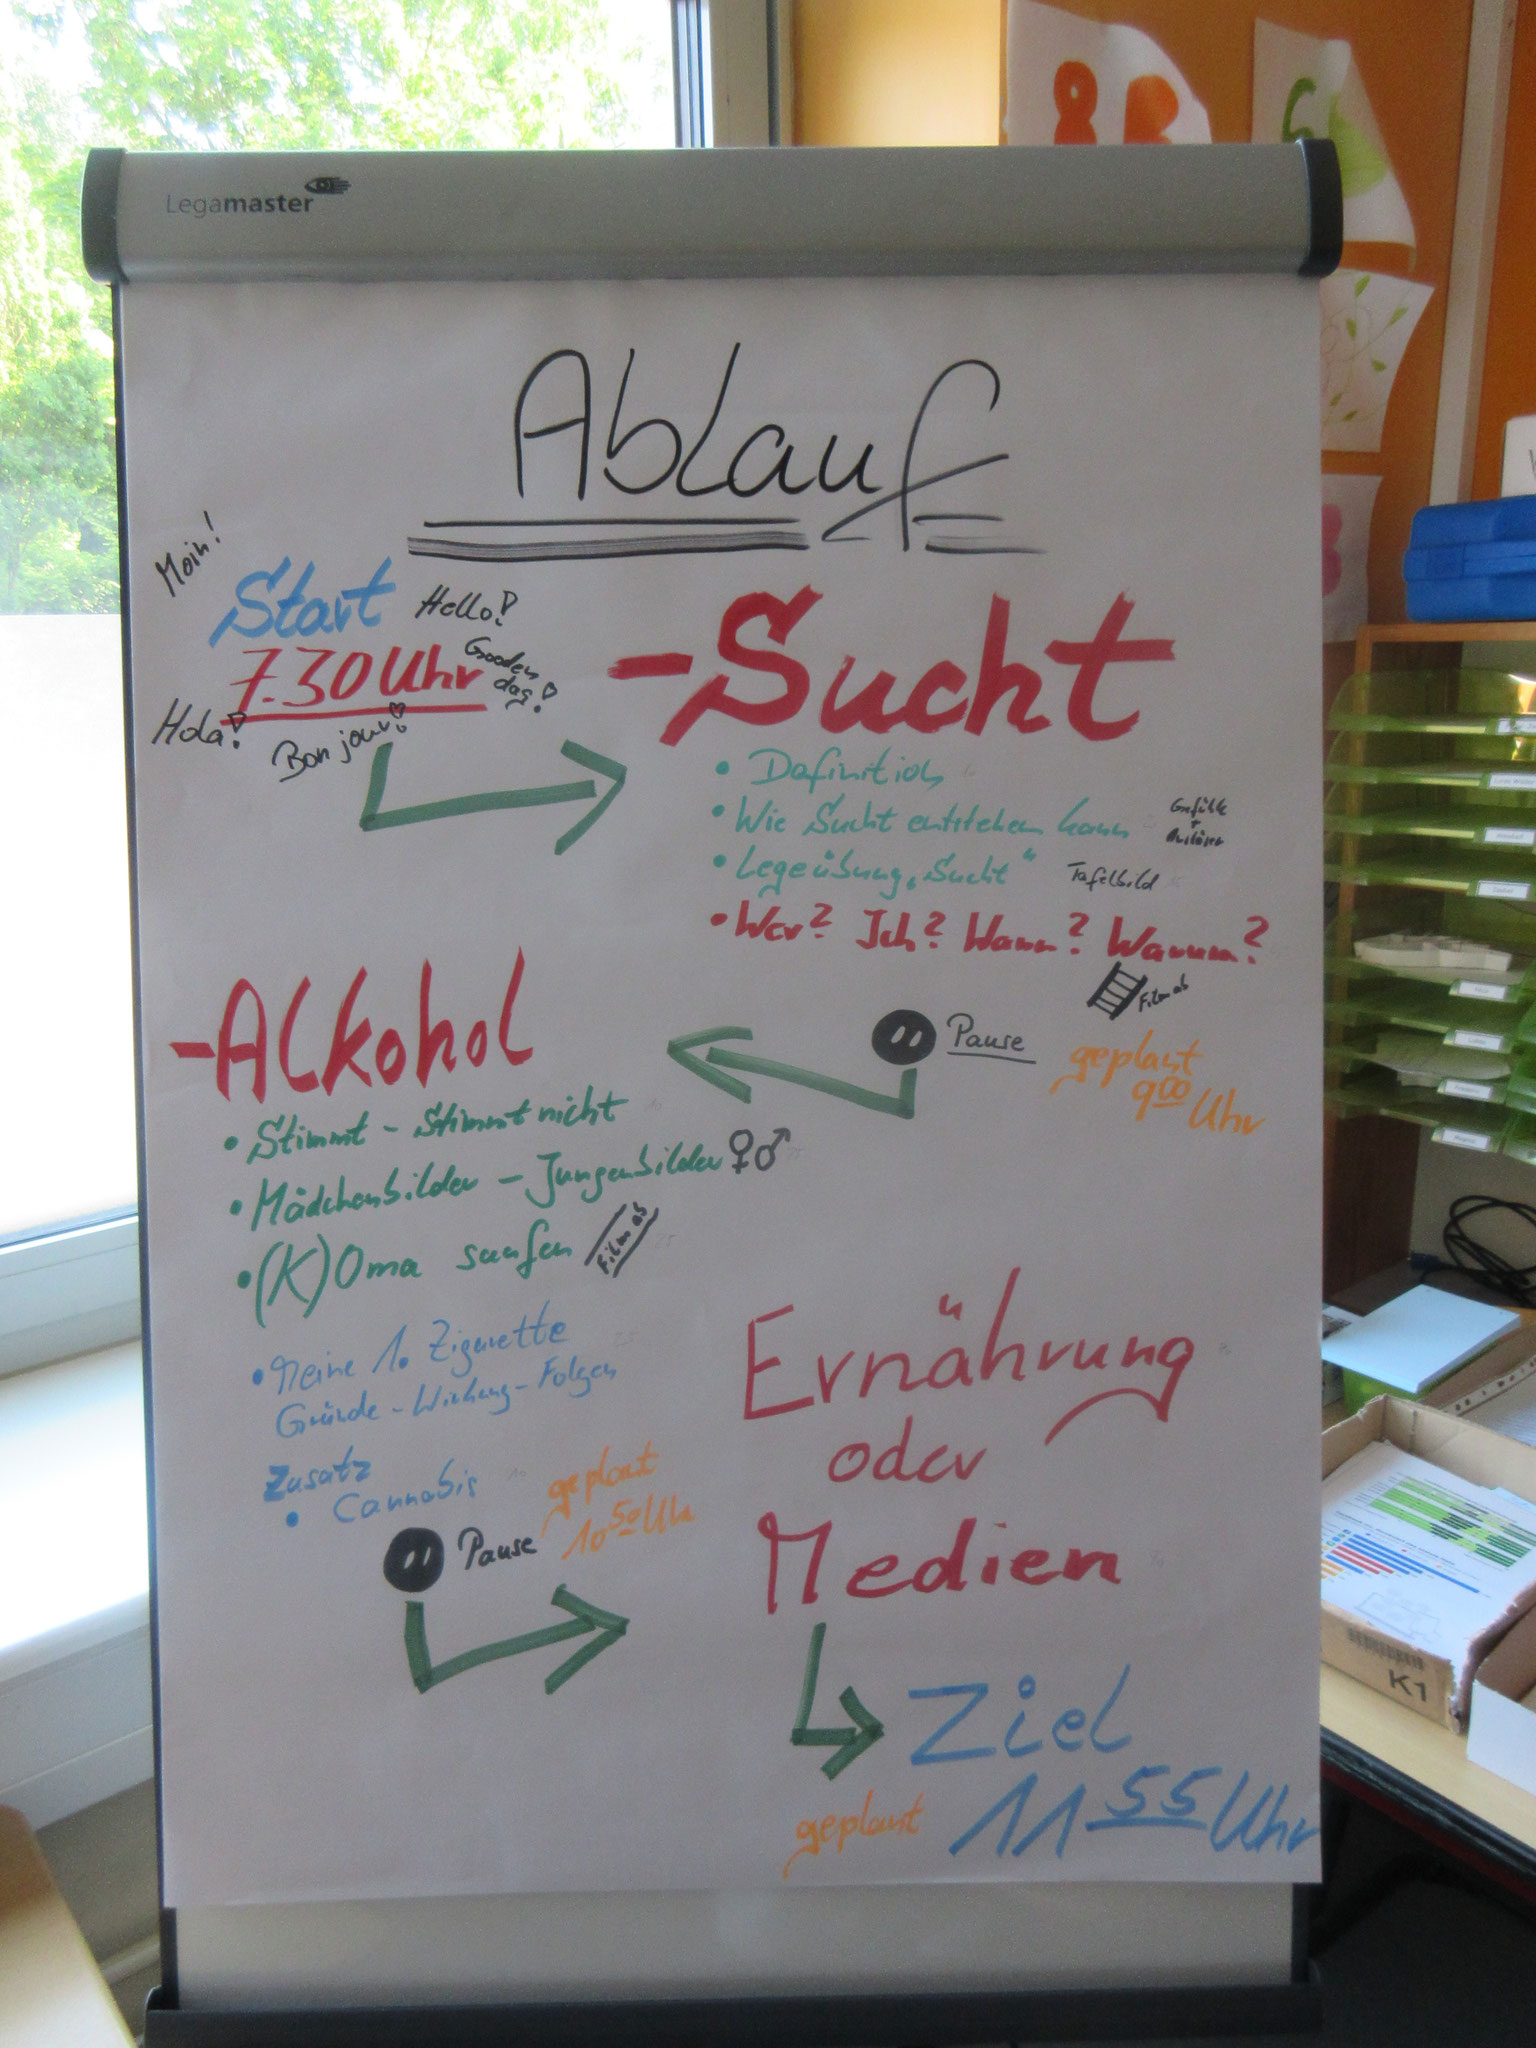 Legamaster
8B
Ablauf
Moin!
Start
Hello!
7.30 Uhr
Gooden
dag!
Hola!
Bon jour!
- Sucht
• Definition
• Wie Sucht entstehen kann
Gefühle
+
Auslöser
• Legeübung „Sucht“ Tafelbild
• Wer? Ich? Wann? Warum?
Film ab
Pause
geplant
9 00 Uhr
- Alkohol
• Stimmt - Stimmt nicht
• Mädchenbilder - Jungenbilder ♀♂
• (K)Oma saufen
Film ab
• Meine 1. Zigarette
Gründe - Wirkung - Folgen
Zusatz
• Cannabis
Pause
geplant
10 50 Uhr
Ernährung
oder
Medien
Ziel
geplant
11 55 Uhr
K1